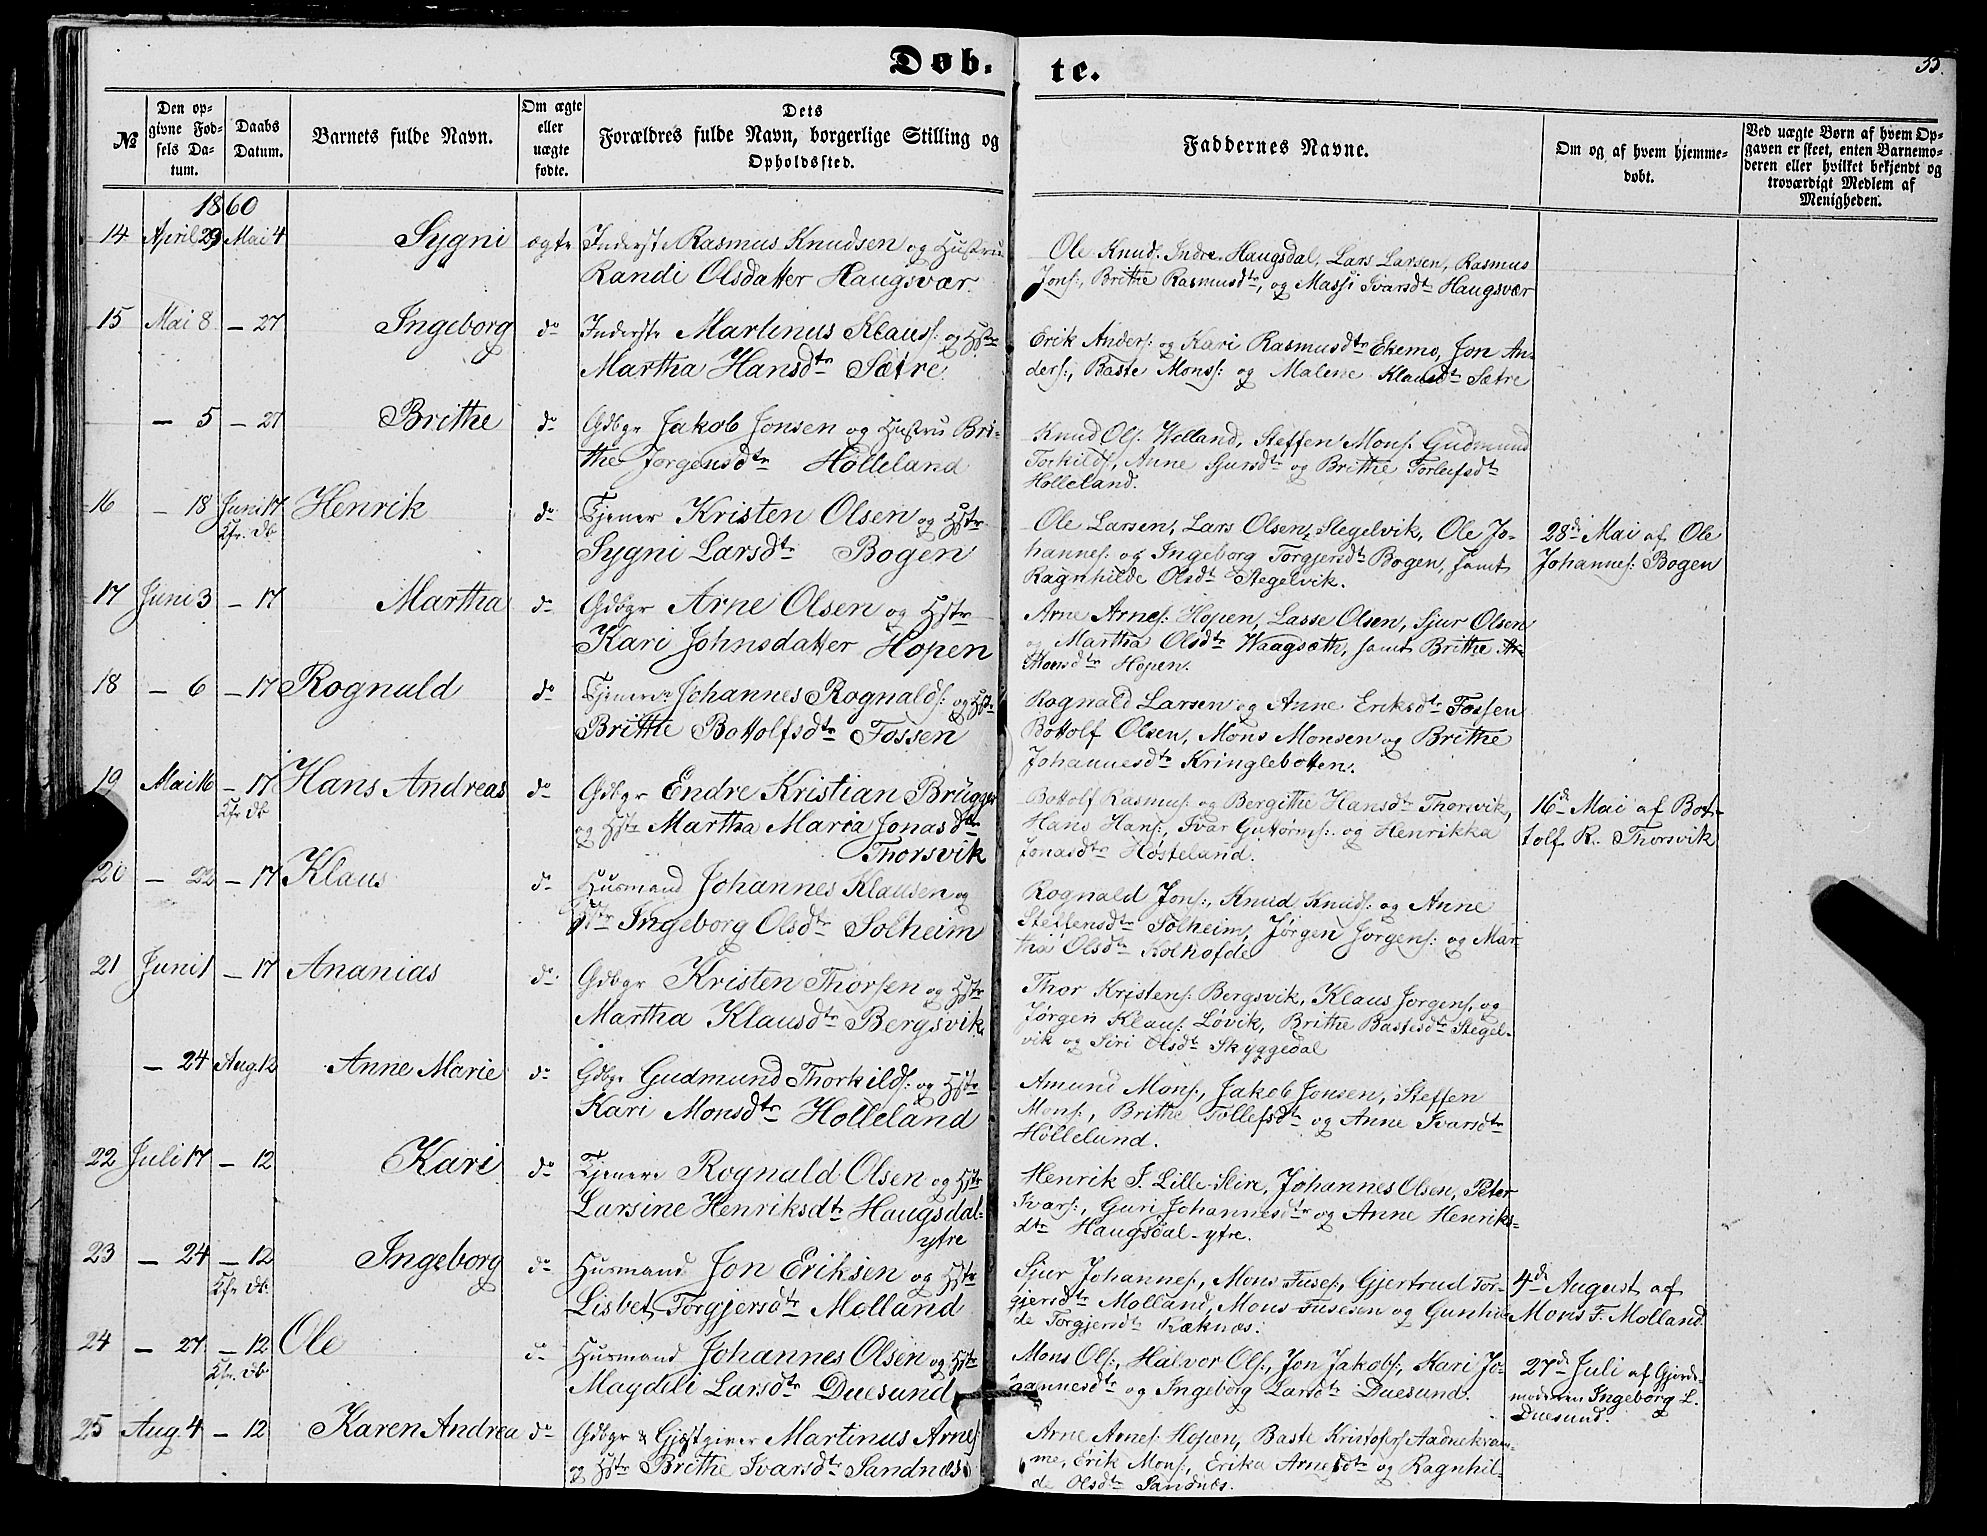 Døb-te.
55.
№
Den opgivne Fødsels Datum.
Daabs Datum.
Barnets fulde Navn.
Om ægte eller uægte fødte.
Dets Forældres fulde Navn, borgerlige Stilling og Opholdssted.
Faddernes Navne.
Om og af hvem hjemmedøbt.
Ved uægte Børn af hvem Opgaven er skeet, enten Barnemoderen eller hvilket bekjendt og troværdigt Medlem af Menigheden.
1860
14 April 29 Mai 4 Sygni ægte Inderst Rasmus Knudsen og Hustru
Randi Olsdatter Haugsvær
Ole Knuds: Indre Haugsdal, Lars Larsen, Rasmus
Jons:, Brithe Rasmusdtr, og Massi Ivarsdtr Haugsvær
15 Mai 8 — 27 Ingeborg do Inderste Martinus Klaus: og Hstr
Martha Hansdtr Sætre
Erik Anders: og Kari Rasmusdtr Ekemo, Jon An-
ders:, Baste Mons: og Malene Klausdtr Sætre
— 5 — 27 Brithe do Gdbgr Jakob Jonsen og Hustru Bri-
the Jørgensdtr Hølleland
Knud Ols: Welland, Steffen Mons: Gudmund
Torkilds, Anne Sjursdtr og Brithe Torleifsdtr
Hølleland.
16 — 18 Juni 17 Henrik do Tjener Kristen Olsen og Hstr
Kfr. db
Sygni Larsdtr Bogen
Ole Larsen, Lars Olsen, Stegelvik, Ole Jo-
hannes: og Ingeborg Torgjersdtr Bogen, samt
Ragnhilde Olsdtr Stegelvik.
28de Mai af Ole
Johannes: Bogen
17 Juni 3 — 17 Martha do Gdbgr Arne Olsen og Hstr
Kari Johnsdatter Hopen
Arne Arnes: Hopen, Lasse Olsen, Sjur Olsen
og Martha Olsdtr Waagsæth, samt Brithe
Monsdtr Hopen.
18 — 6 — 17 Rognald do Tjener Johannes Rognalds: og Hstr
Brithe Bottolfsdtr Fossen
Rognald Larsen og Anne Eriksdtr Fossen
Bottolf Olsen, Mons Monsen og Brithe
Johannesdtr Kringlebotten.
19 Mai 16 — 17 Hans Andreas do Gdbgr Endre Kristian Brügger
Kfr db
og Hstr Martha Maria Jonasdtr
Thorsvik
Bottolf Rasmus: og Bergithe Hansdtr Thorsvik,
Hans Hans:, Ivar Guttorms: og Henrikka
Jonasdtr Høsteland.
16de Mai af Bot-
tolf R. Thorsvik
20 — 22 — 17 Klaus do Husmand Johannes Klausen og
Hstr Ingeborg Olsdtr Solheim
Rognald Jons:, Knud Knuds: og Anne
Steffensdtr Solheim, Jørgen Jørgens: og Mar-
tha Olsdtr Kolhofde
21 Juni 1 — 17 Ananias do Gdbgr Kristen Thorsen og Hstr
Martha Klausdtr Bergsvik
Thor Kristens: Bergsvik, Klaus Jørgens, og
Jørgen Klaus: Løvik, Brithe Bastesdtr Stegel-
vik og Siri Olsdtr Skyggedal
— 24 Aug. 12 Anne Marie do Gdbgr Gudmund Thorkilds: og Hstr
Kari Monsdtr Hølleland
Amund Mons:, Jakob Jonsen, Steffen
Mons:, Brithe Tollefsdtr og Anne Ivarsdtr
Hølleland.
22 Juli 17 — 12 Kari do Tjener Rognald Olsen og Hstr
Larsine Henriksdtr Haugsdal-
ytre
Henrik J. Lille-Hire, Johannes Olsen, Peter
Ivars:, Guri Johannesdtr og Anne Henriks-
dtr Haugsdal-ytre.
23 — 24 — 12 Ingeborg do Husmand Jon Eriksen og Hstr
Kfr db.
Lisbet Torgjersdtr Molland
Sjur Johannes:, Mons Fuses:, Gjertrud Tor-
gjersdtr Molland, Mons Fusesen og Gunhil-
de Torgjersdtr Ræknæs.
4de August af
Mons F. Molland
24 — 27 — 12 Ole do Husmand Johannes Olsen og Hstr
Kfr. db
Magdeli Larsdtr Duesund
Mons Ols:, Halvor Ols:, Jon Jakobs:, Kari Jo-
hannesdtr og Ingeborg Larsdtr Duesund.
27de Juli af Gjorde-
moderen Ingeborg L.
Duesund.
25 Aug. 4 — 12 Karen Andrea do Gdbgr & Gjæstgiver Martinus Arnes:
og Hstr Brithe Ivarsdtr Sandnæs
Arne Arnes: Hopen, Baste Kristofers Aadnekvam-
me, Erik Mons:, Erika Arnesdtr og Ragnhil-
de Olsdtr Sandnæs.